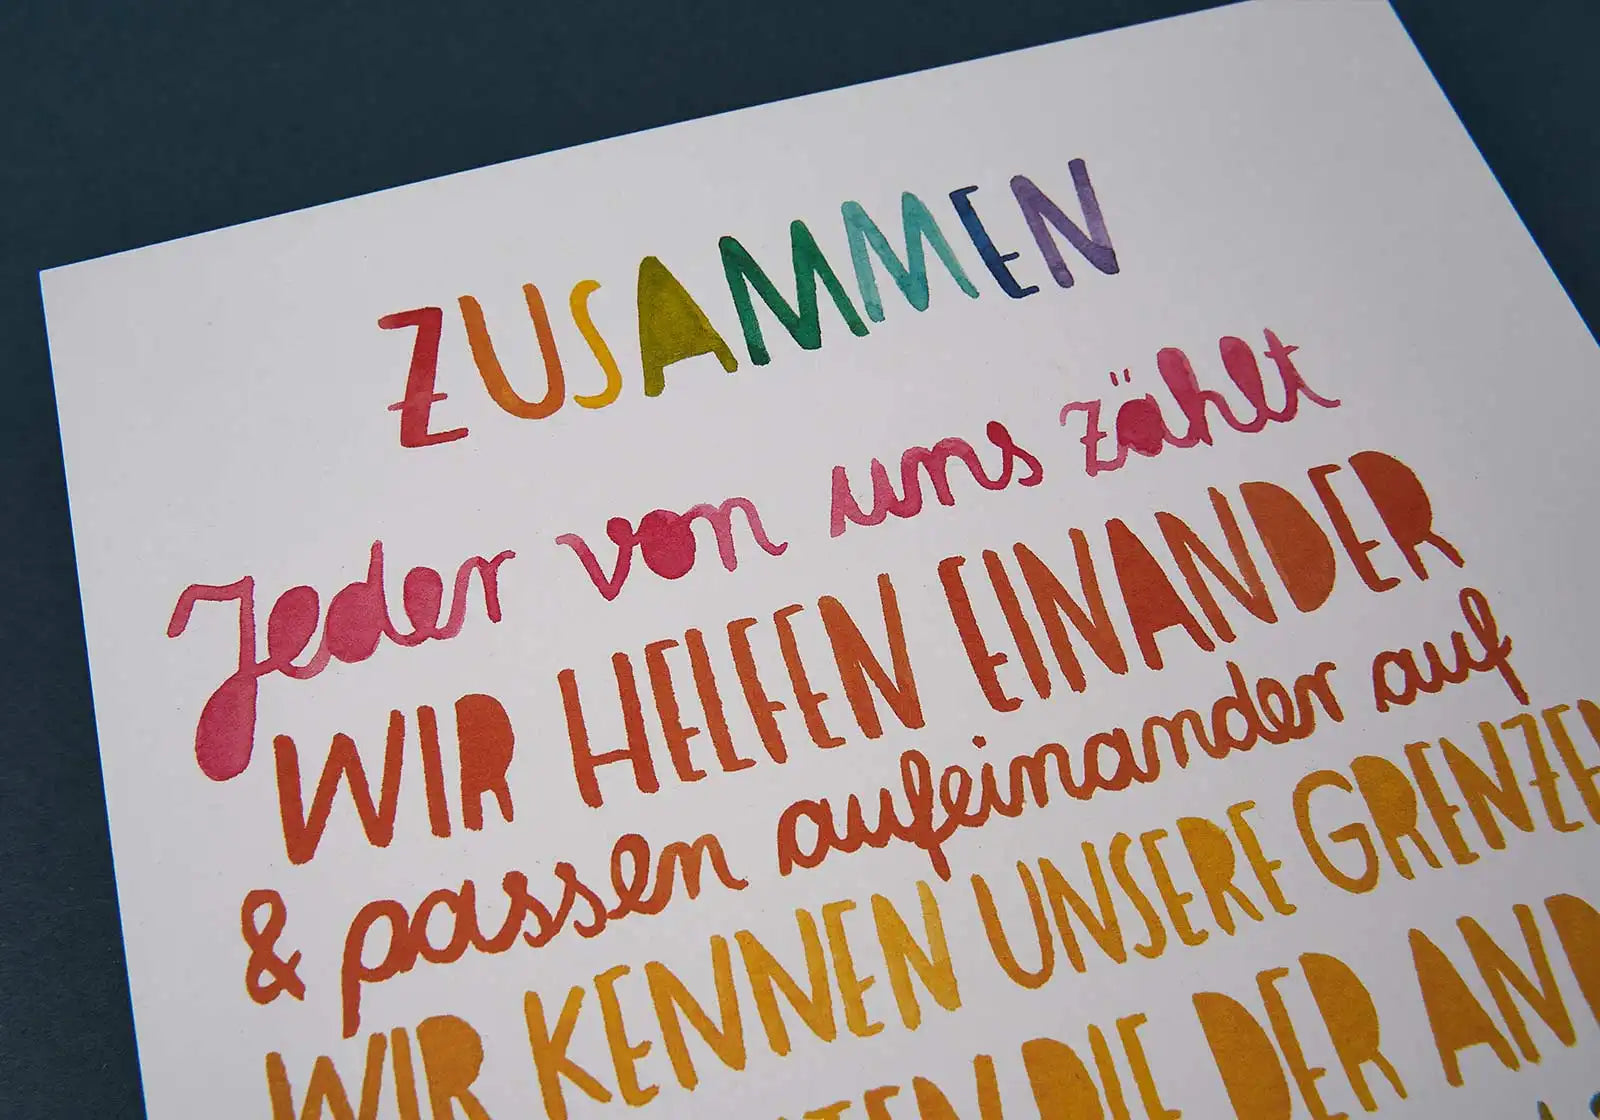 ZUSAMMEN
Jeder von uns zählt
WIR HELFEN EINANDER
& passen aufeinander auf
WIR KENNEN UNSERE GRENZEN
DIE DER